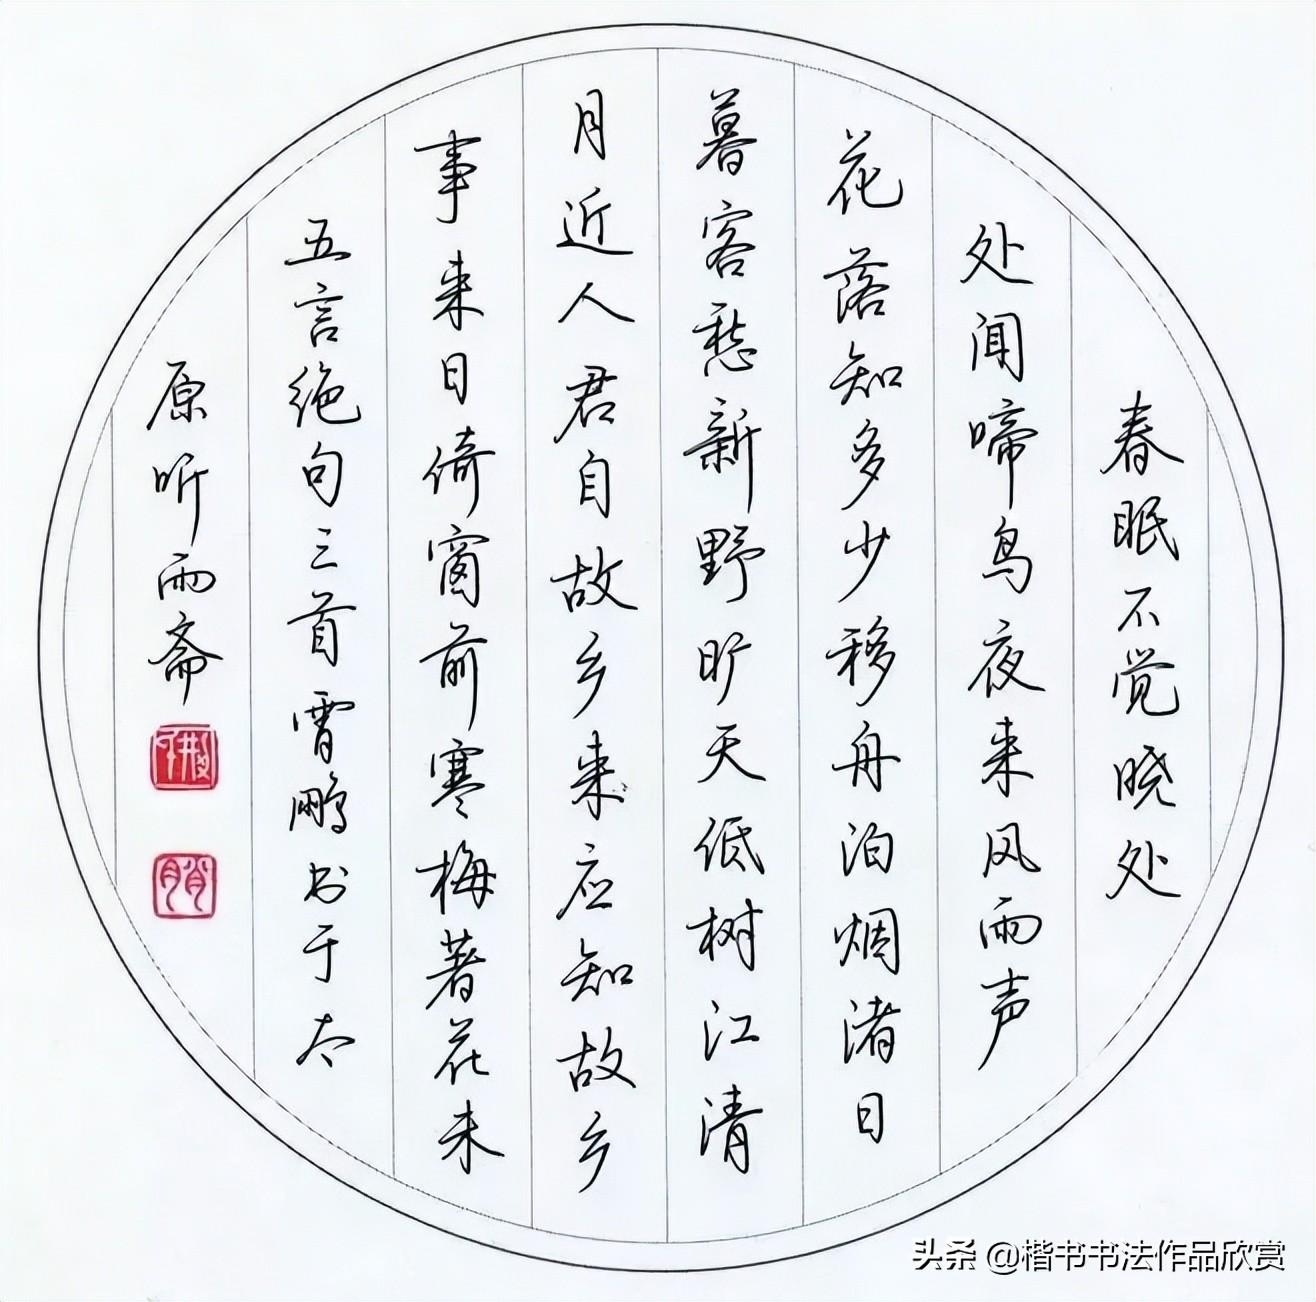 春眠不觉晓处
处闻啼鸟夜来风雨声
花落知多少移舟泊烟渚日
暮客愁新野旷天低树江清
月近人君自故乡来应知故乡
事来日倚窗前寒梅著花未
五言绝句三首霄鹏书于太
原听雨斋
头条 @楷书书法作品欣赏